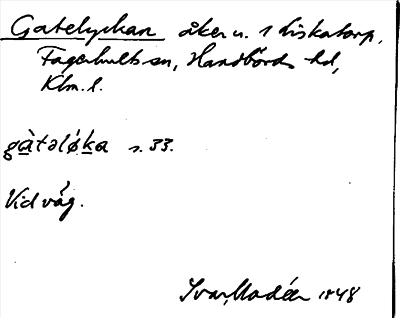 Gatelyckan åker u. 1 Fiskatorp,
Fagerhults sn, Handbörds hd,
Klm. l.
gàtəløka s. 33.
Vid väg.
Ivar Modéer 1948